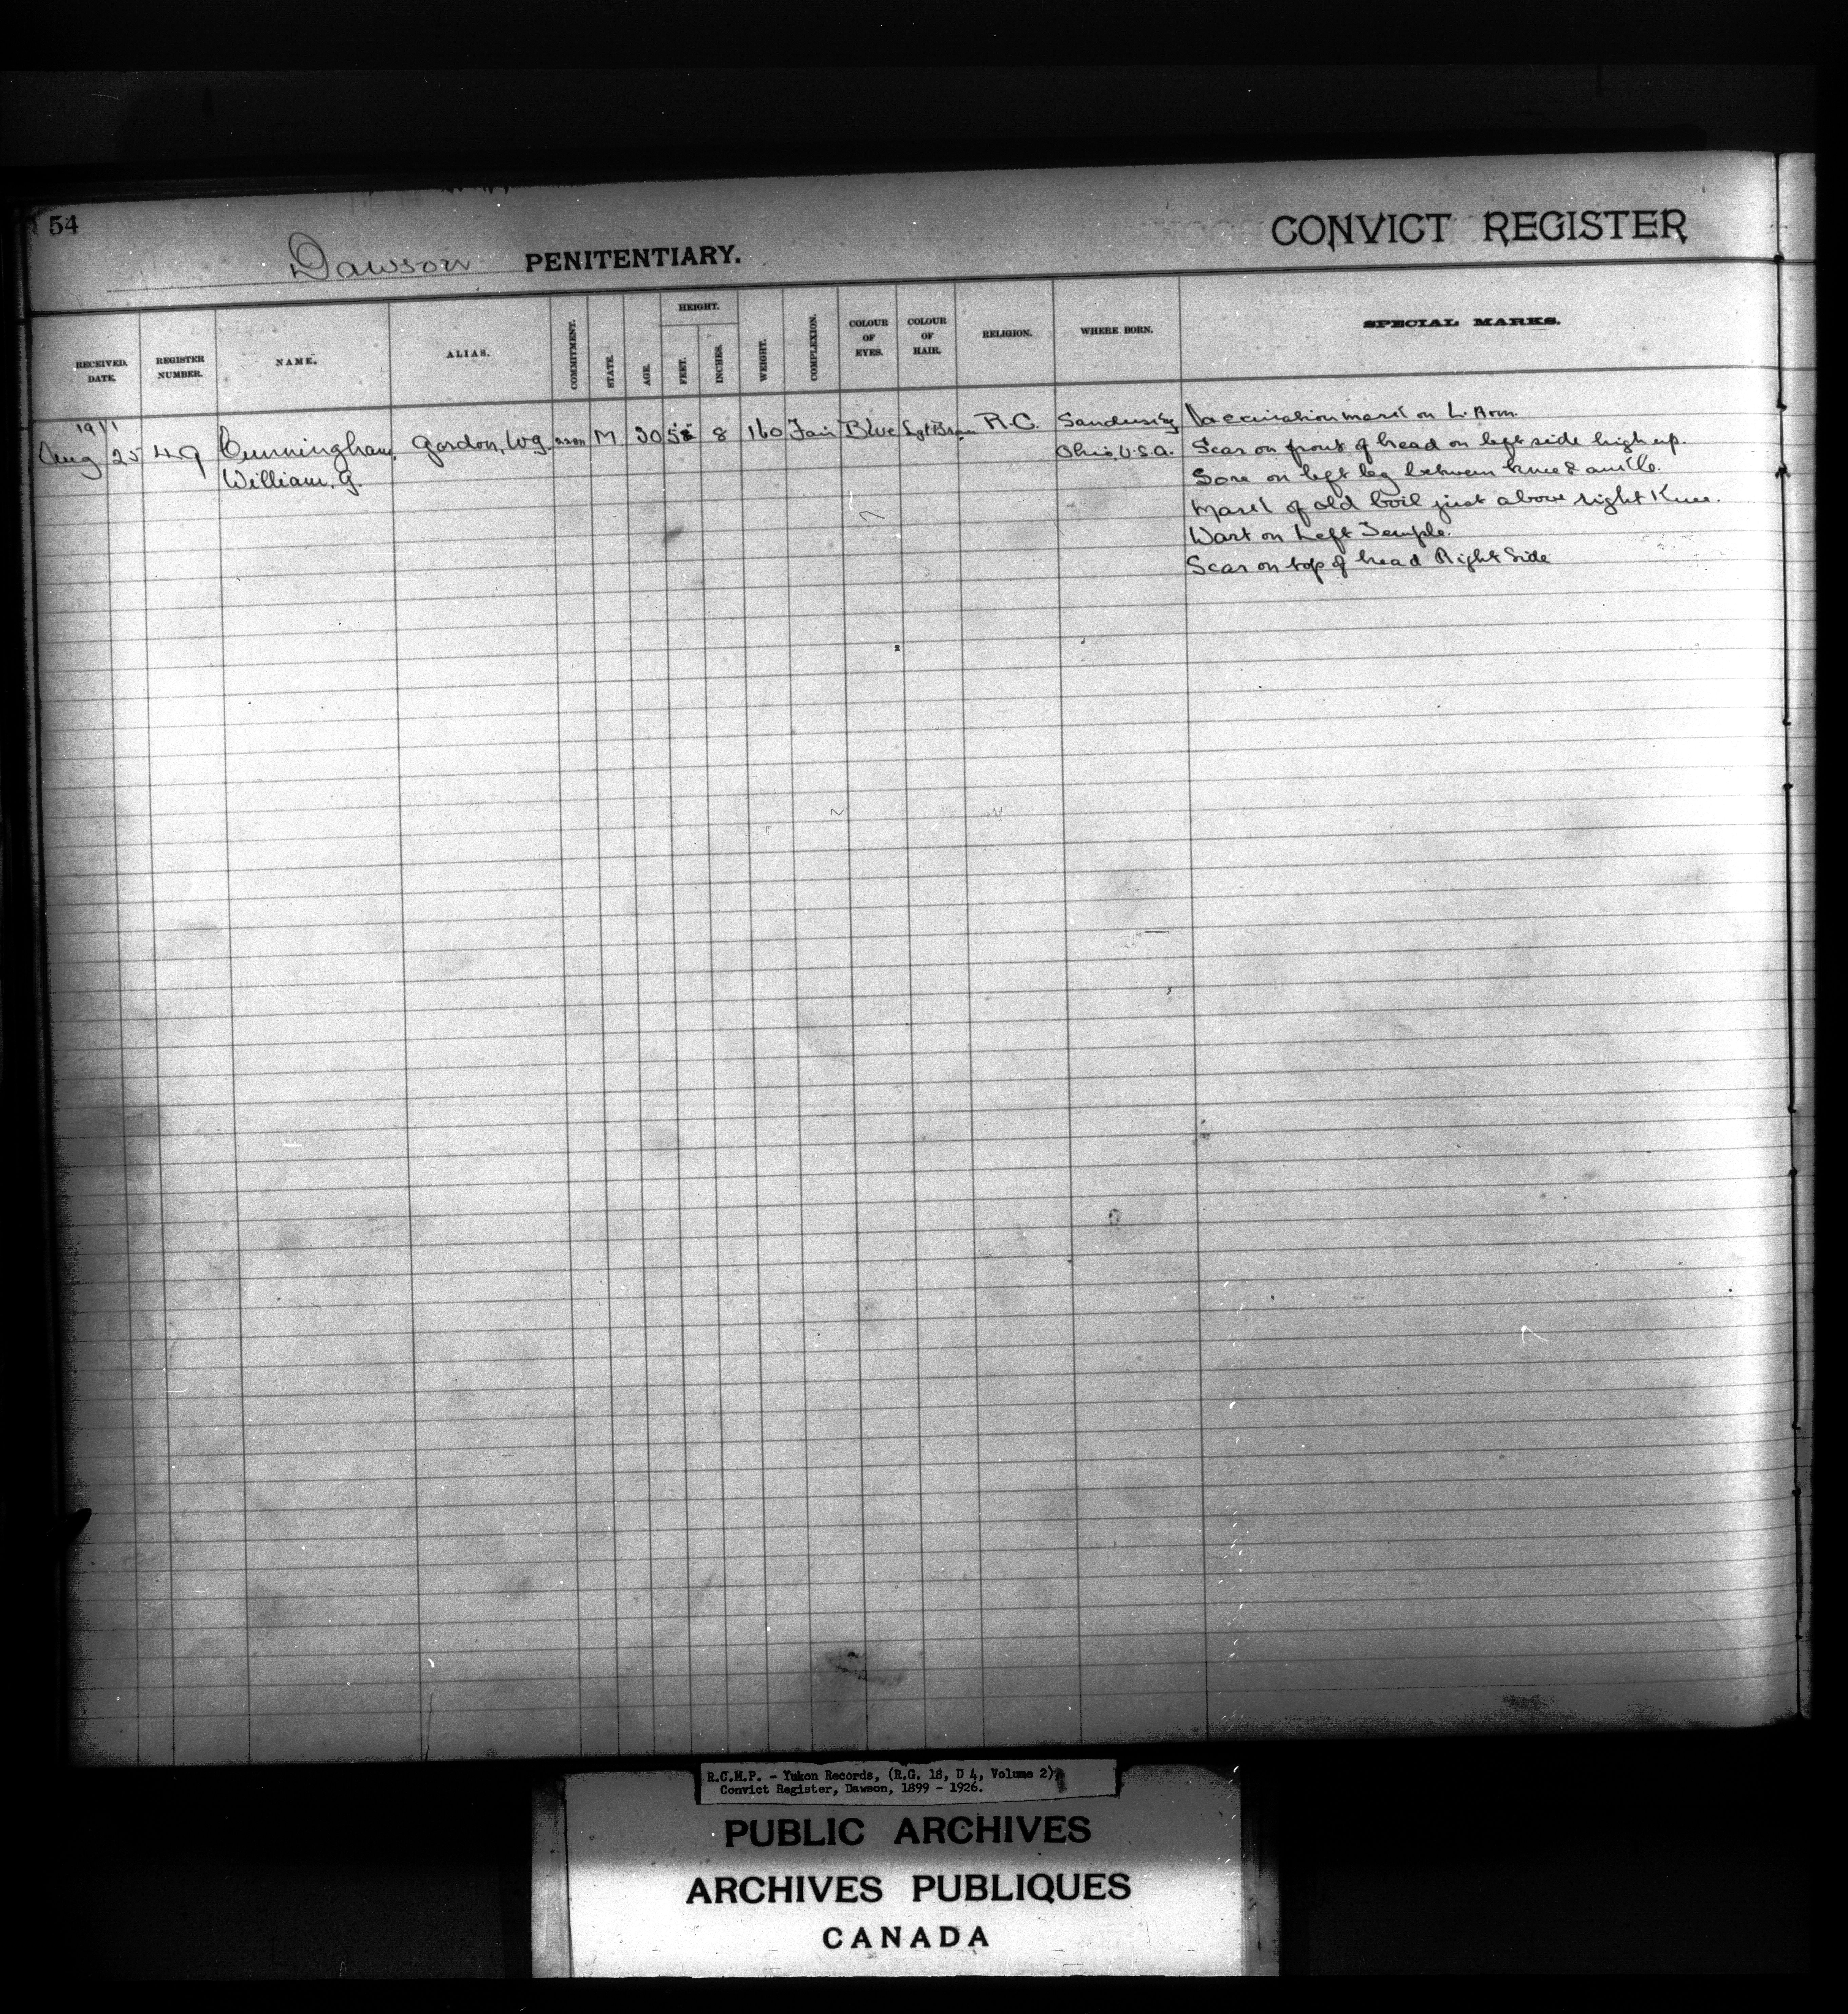 54
Dawson PENITENTIARY.
CONVICT REGISTER
RECEIVED. DATE.
REGISTER NUMBER.
NAME.
ALIAS.
COMMITMENT.
STATE.
AGE.
HEIGHT.
FEET.
INCHES.
WEIGHT.
COMPLEXION.
COLOUR OF EYES.
COLOUR OF HAIR.
RELIGION.
WHERE BORN.
SPECIAL MARKS.
1911
Aug 25 49 Cunningham, Gordon, W.G. M 8 160 Fair Blue Lgt Brown R.C. Sandusky Vaccination mark on L. Arm.
William, G. Ohio, U.S.A. Scar on front of head on left side high up.
on left leg between knee & ankle.
Mark of old boil just above right Knee.
Wart on Left Temple.
Scar on top of head Right Side
R.C.M.P. - Yukon Records, (R.G. 18, D 4, Volume 2)
Convict Register, Dawson, 1899 - 1926.
PUBLIC ARCHIVES
ARCHIVES PUBLIQUES
CANADA